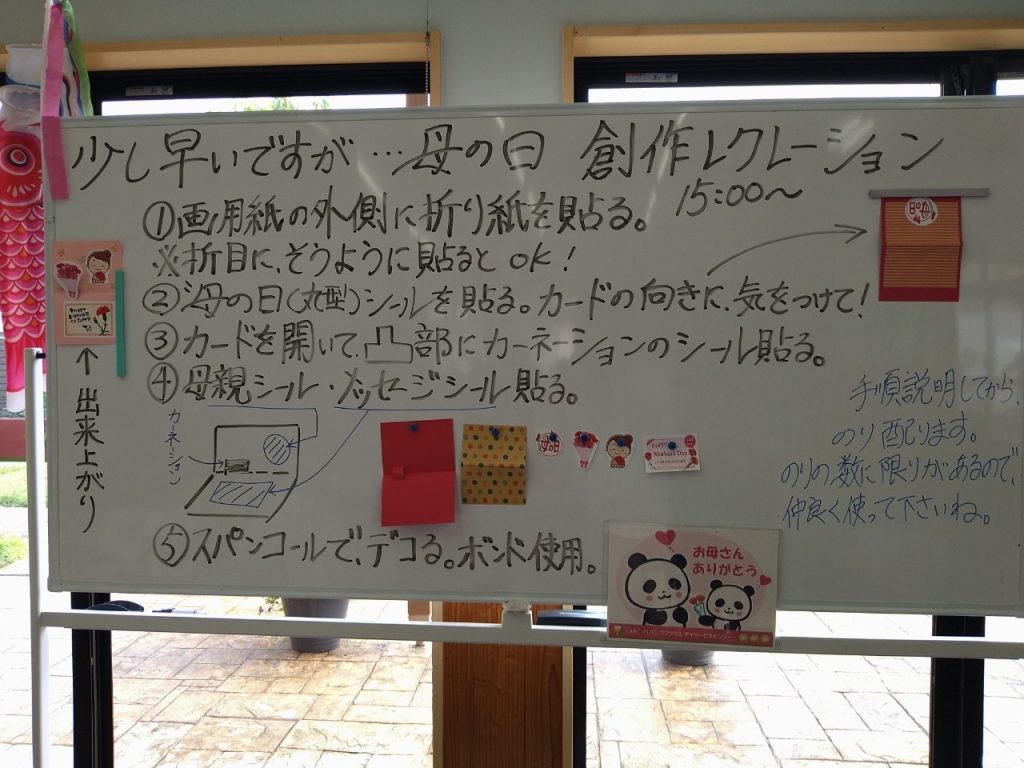 少し早いですが…母の日 創作レクレーション
15:00〜
①画用紙の外側に折り紙を貼る。
※折目に、そうように貼るとOK!
②母の日(丸型)シールを貼る。カードの向きに、気をつけて!
③カードを開いて、凸部にカーネーションのシール貼る。
④母親シール・メッセージシール貼る。
カーネーション
↑出来上がり
母の日
母の日
Happy
Mother's Day
手順説明してから、
のり配ります。
のりの数に限りがあるので、
仲良く使って下さいね。
⑤スパンコールで、デコる。ボンド使用。
お母さん
ありがとう
CARE PLUS ケアプラス デイサービスセンター